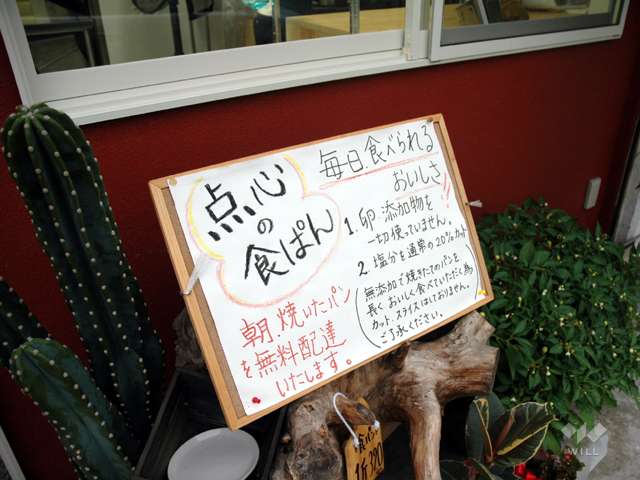 点心
の
食ぱん
毎日食べられる
おいしさ!!
1. 卵・添加物を
一切使っていません。
2. 塩分を通常の20%カット
(無添加で焼きたてのパンを
長く、おいしく食べていただく為
カット、スライスはしておりません。
ご了承ください。)
朝、焼いたパン
を無料配達
いたします。
食パン
1斤 390
WILL